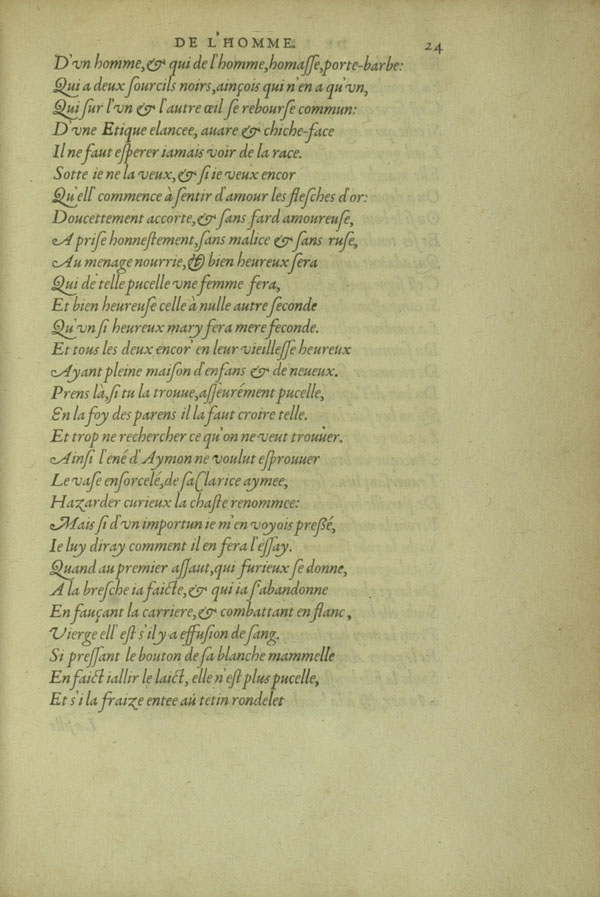 DE L'HOMME. 24
D'vn homme, & qui de l'homme, homasse, porte-barbe:
Qui a deux sourcils noirs, ainçois qui n'en a qu'vn,
Qui sur l'vn & l'autre œil se rebourse commun:
D'vne Etique elancee, auare & chiche-face
Il ne faut esperer iamais voir de la race.
Sotte ie ne la veux, & si ie veux encor
Qu'ell' commence à sentir d'amour les flesches d'or:
Doucettement accorte, & sans fard amoureuse,
A prise honnestement, sans malice & sans ruse,
Au menage nourrie, & bien heureux sera
Qui de telle pucelle vne femme fera,
Et bien heureuse celle à nulle autre seconde
Qu'vn si heureux mary fera mere feconde.
Et tous les deux encor' en leur vieillesse heureux
Ayant pleine maison d'enfans & de neueux.
Prens là, si tu la trouue, asseurément pucelle,
En la foy des parens il la faut croire telle.
Et trop ne rechercher ce qu'on ne veut trouuer.
Ainsi l'ené d'Aymon ne voulut esprouuer
Le vase ensorcelé, de sa Clarice aymee,
Hazarder curieux la chaste renommee:
Mais si d'vn importun ie m'en voyois preßé,
Ie luy diray comment il en fera l'essay.
Quand au premier assaut, qui furieux se donne,
A la bresche ia faicte, & qui ia s'abandonne
En fauçant la carriere, & combattant en flanc,
Vierge ell' est s'il y a effusion de sang.
Si pressant le bouton de sa blanche mammelle
En faict iallir le laict, elle n'est plus pucelle,
Et s'i la fraize entee au tetin rondelet